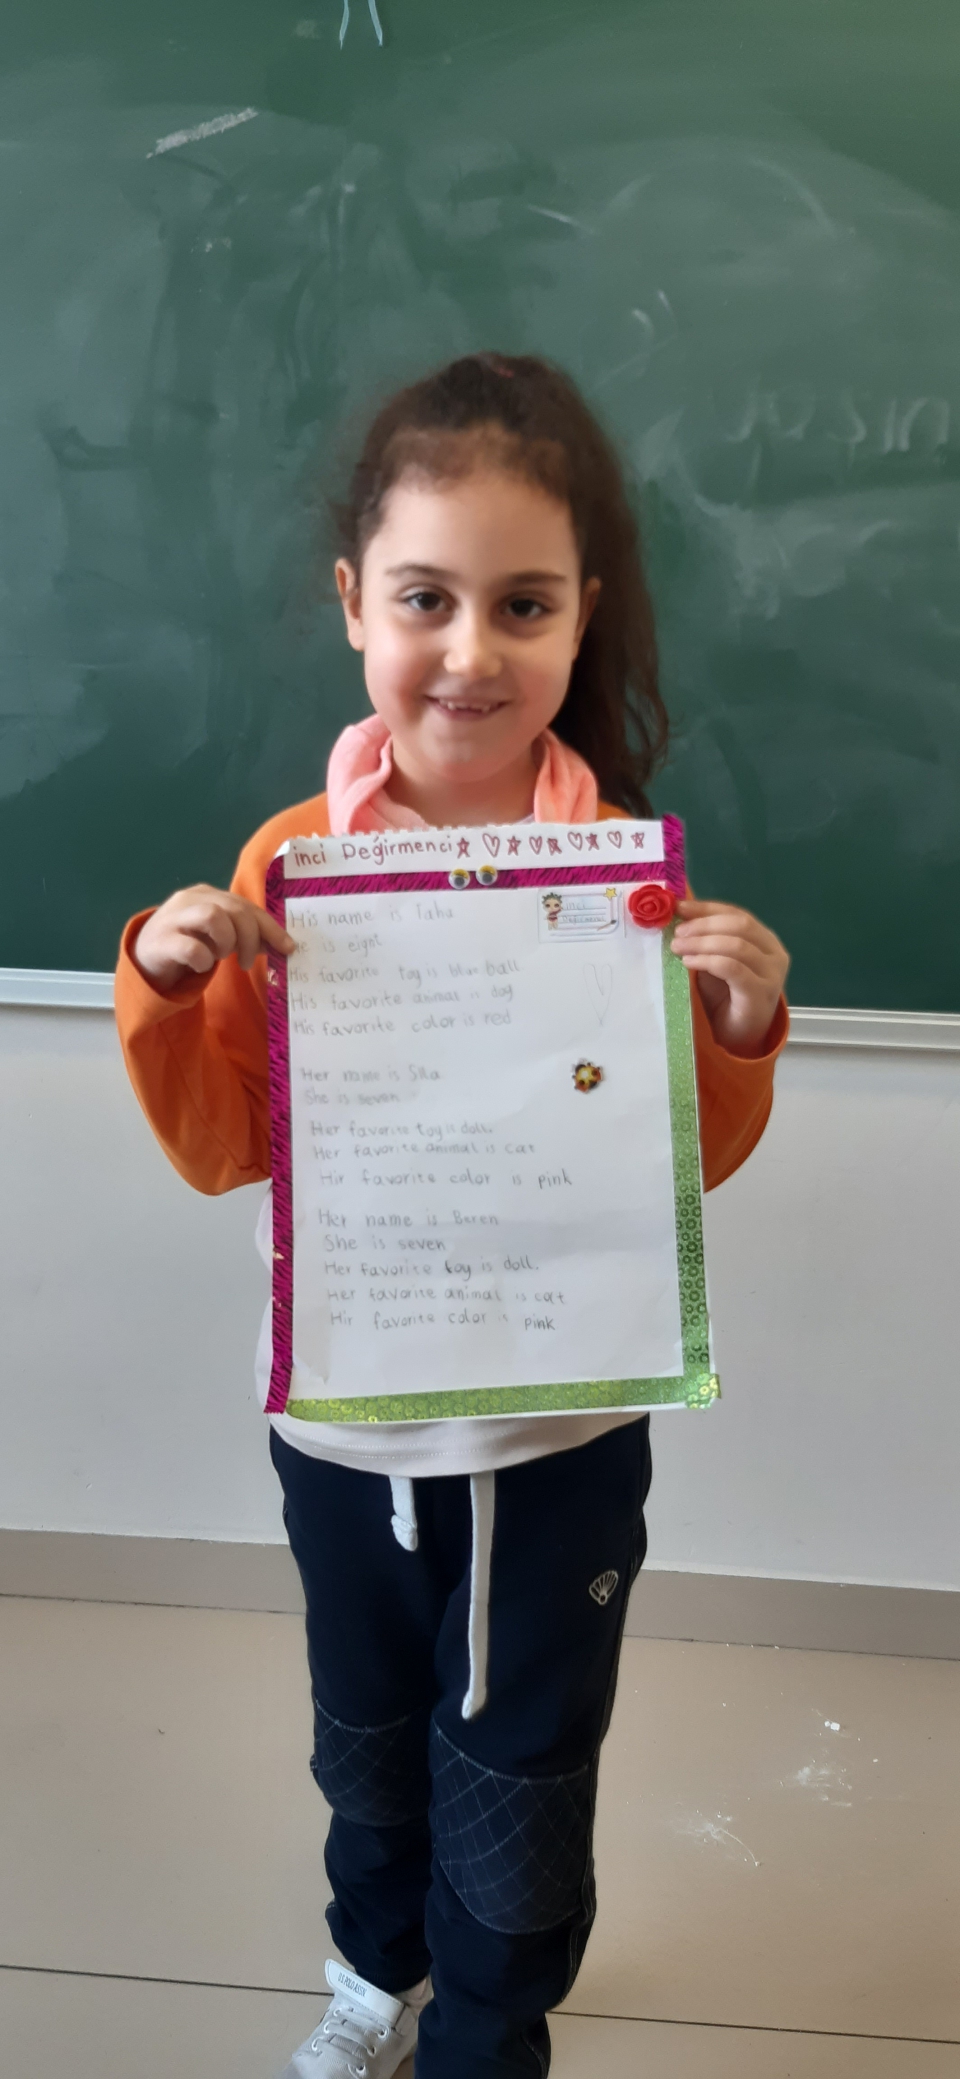 inci Değirmenci
inci
Değirmenci
His name is Taha
He is eight
His favorite toy is blue ball
His favorite animas is dog
His favorite color is red
Her name is Sıla
She is seven
Her favorite toy is doll.
Her favorite animal is cat
Hir favorite color is pink
Her name is Beren
She is seven
Her favorite toy is doll.
Her favorite animal is cat
Hir favorite color is pink